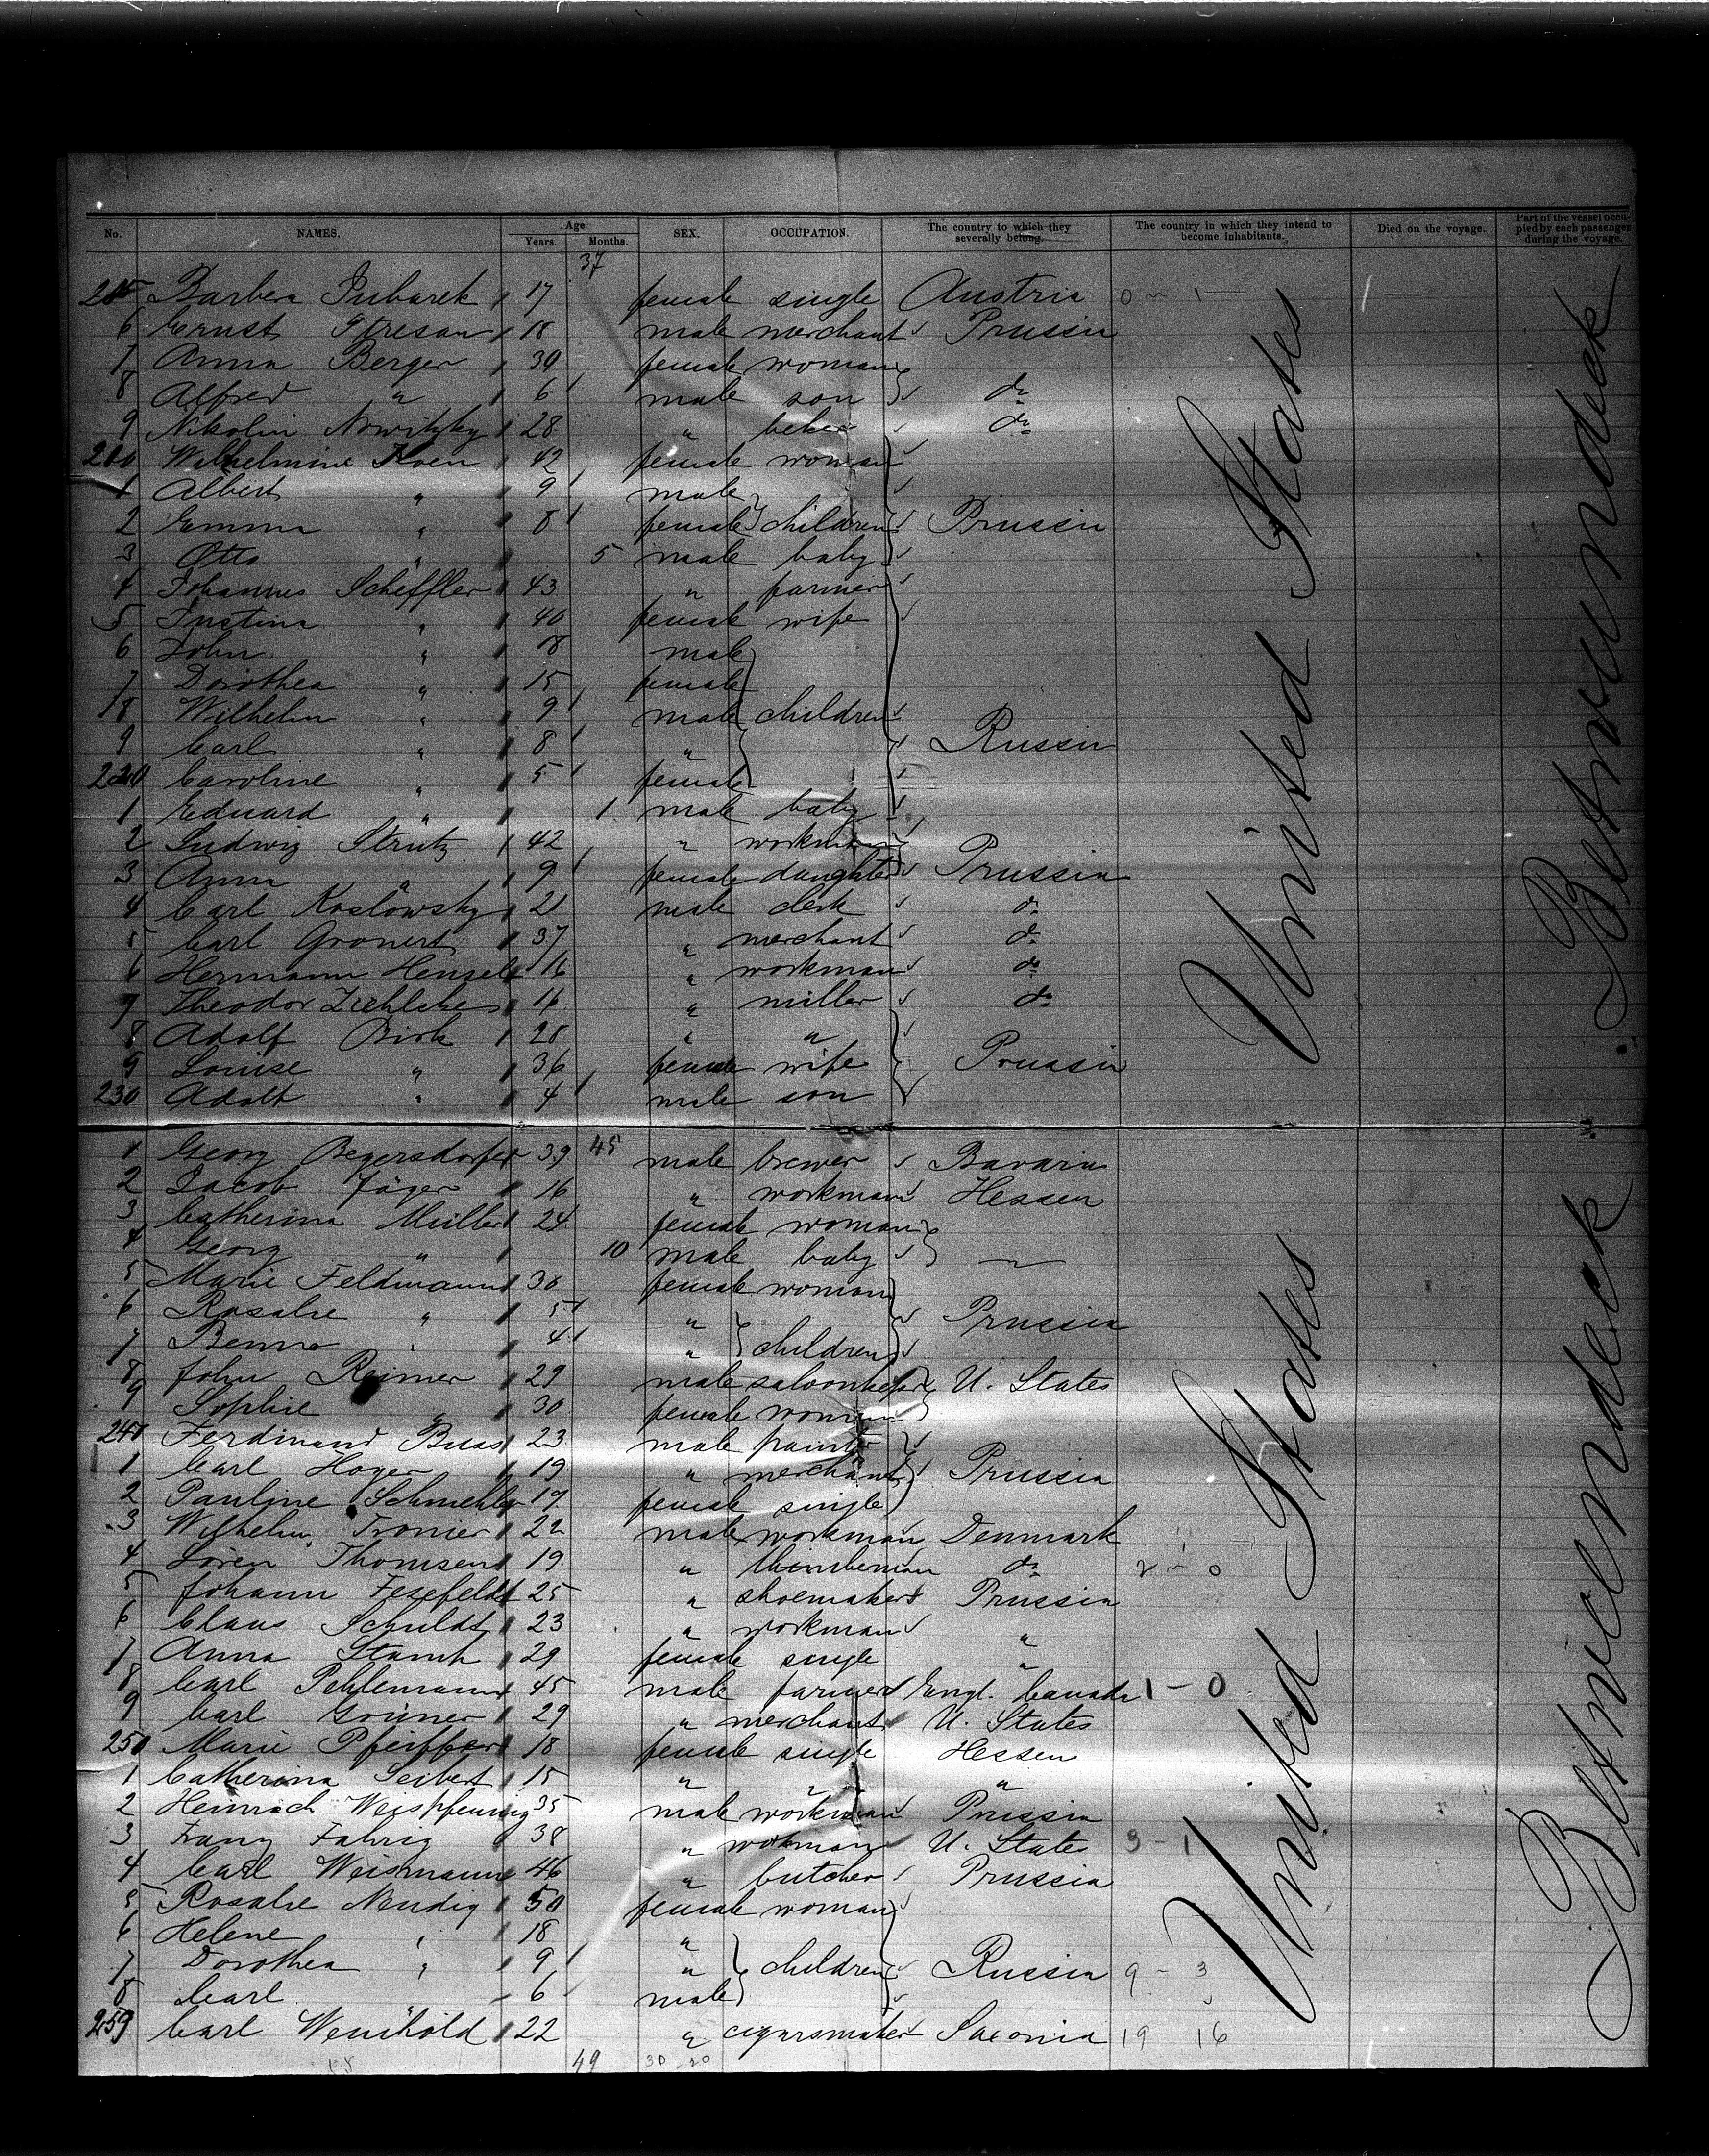 No. NAMES. Age Years. Months. SEX. OCCUPATION. The country to which they severally belong. The country in which they intend to become inhabitants. Died on the voyage. Part of the vessel occupied by each passenger during the voyage.
37
205 Barbera 17 female single Austria 0 - 1
6 Ernst Stresau 18 male merchant Prussia
7 Anna Berger 39 female woman
8 Alfred " 6 male son do
9 Nikolin Nowitzky 28 " do
210 Wilhelmine 42 female woman
1 Albert " 9 male
2 Emma " 8 female children Prussia
3 Otto " 5 male baby
4 Johannes Scheffler 43 " farmer
5 Justina " 40 female wife
6 John " 18 male
7 Dorothea " 15 female
18 Wilhelm " 9 male children
9 Carl " 8 " Russia
220 Caroline " 5 female
1 Eduard " 1 male baby
2 Ludwig Strutz 42 " workman
3 Anna " 9 female daughter Prussia
4 Carl Koslowsky 21 male clerk do
5 Carl Gronert 37 " merchant do
6 Hermann Hensel 16 " workman do
7 Theodor 16 " miller do
8 Adolf Birk 28 " "
9 Louise " 36 female wife Prussia
230 Adolf " 4 male son
United States
Betweendeck
1 Georg Begersdorfer 39 45 male brewer Bavaria
2 Jacob Jäger 16 " workman Hessen
3 Catherina Müller 24 female woman
4 Georg " 10 male baby
5 Marie Feldmann 30 female woman
6 Rosalie " 5 " Prussia
7 Benno " 4 " children
8 John Reimer 29 male saloonkeeper U. States
9 Sophie " 30 female woman
240 Ferdinand Buss 23 male painter
1 Carl Hoyer 19 " merchant Prussia
2 Pauline 19 female single
3 Wilhelm Tronier 22 male workman Denmark
4 Sören Thomsen 19 " do 2 - 0
5 Johann Fesefeldt 25 " shoemaker Prussia
6 Claus Schuldt 23 " workman "
7 Anna Stamh 29 female single "
8 Carl Pehlemann 45 male farmer Engl. Canada 1 - 0
9 Carl Grüner 29 " merchant U. States
250 Marie Pfeiffer 18 female single Hessen
1 Catherina Seibert 15 " " "
2 Heinrich Weispfennig 35 male workman Prussia
3 Franz Fahrig 38 " workman U. States 3 - 1
4 Carl Weismann 46 " butcher Prussia
5 Rosalie Neudig 50 female woman
6 Helene " 18 "
7 Dorothea " 9 " children Russia 9 - 3
8 Carl 6 male
259 Carl Weinhold 22 " cigarsmaker Saxonia 19 16
49 30 20
United States
Betweendeck